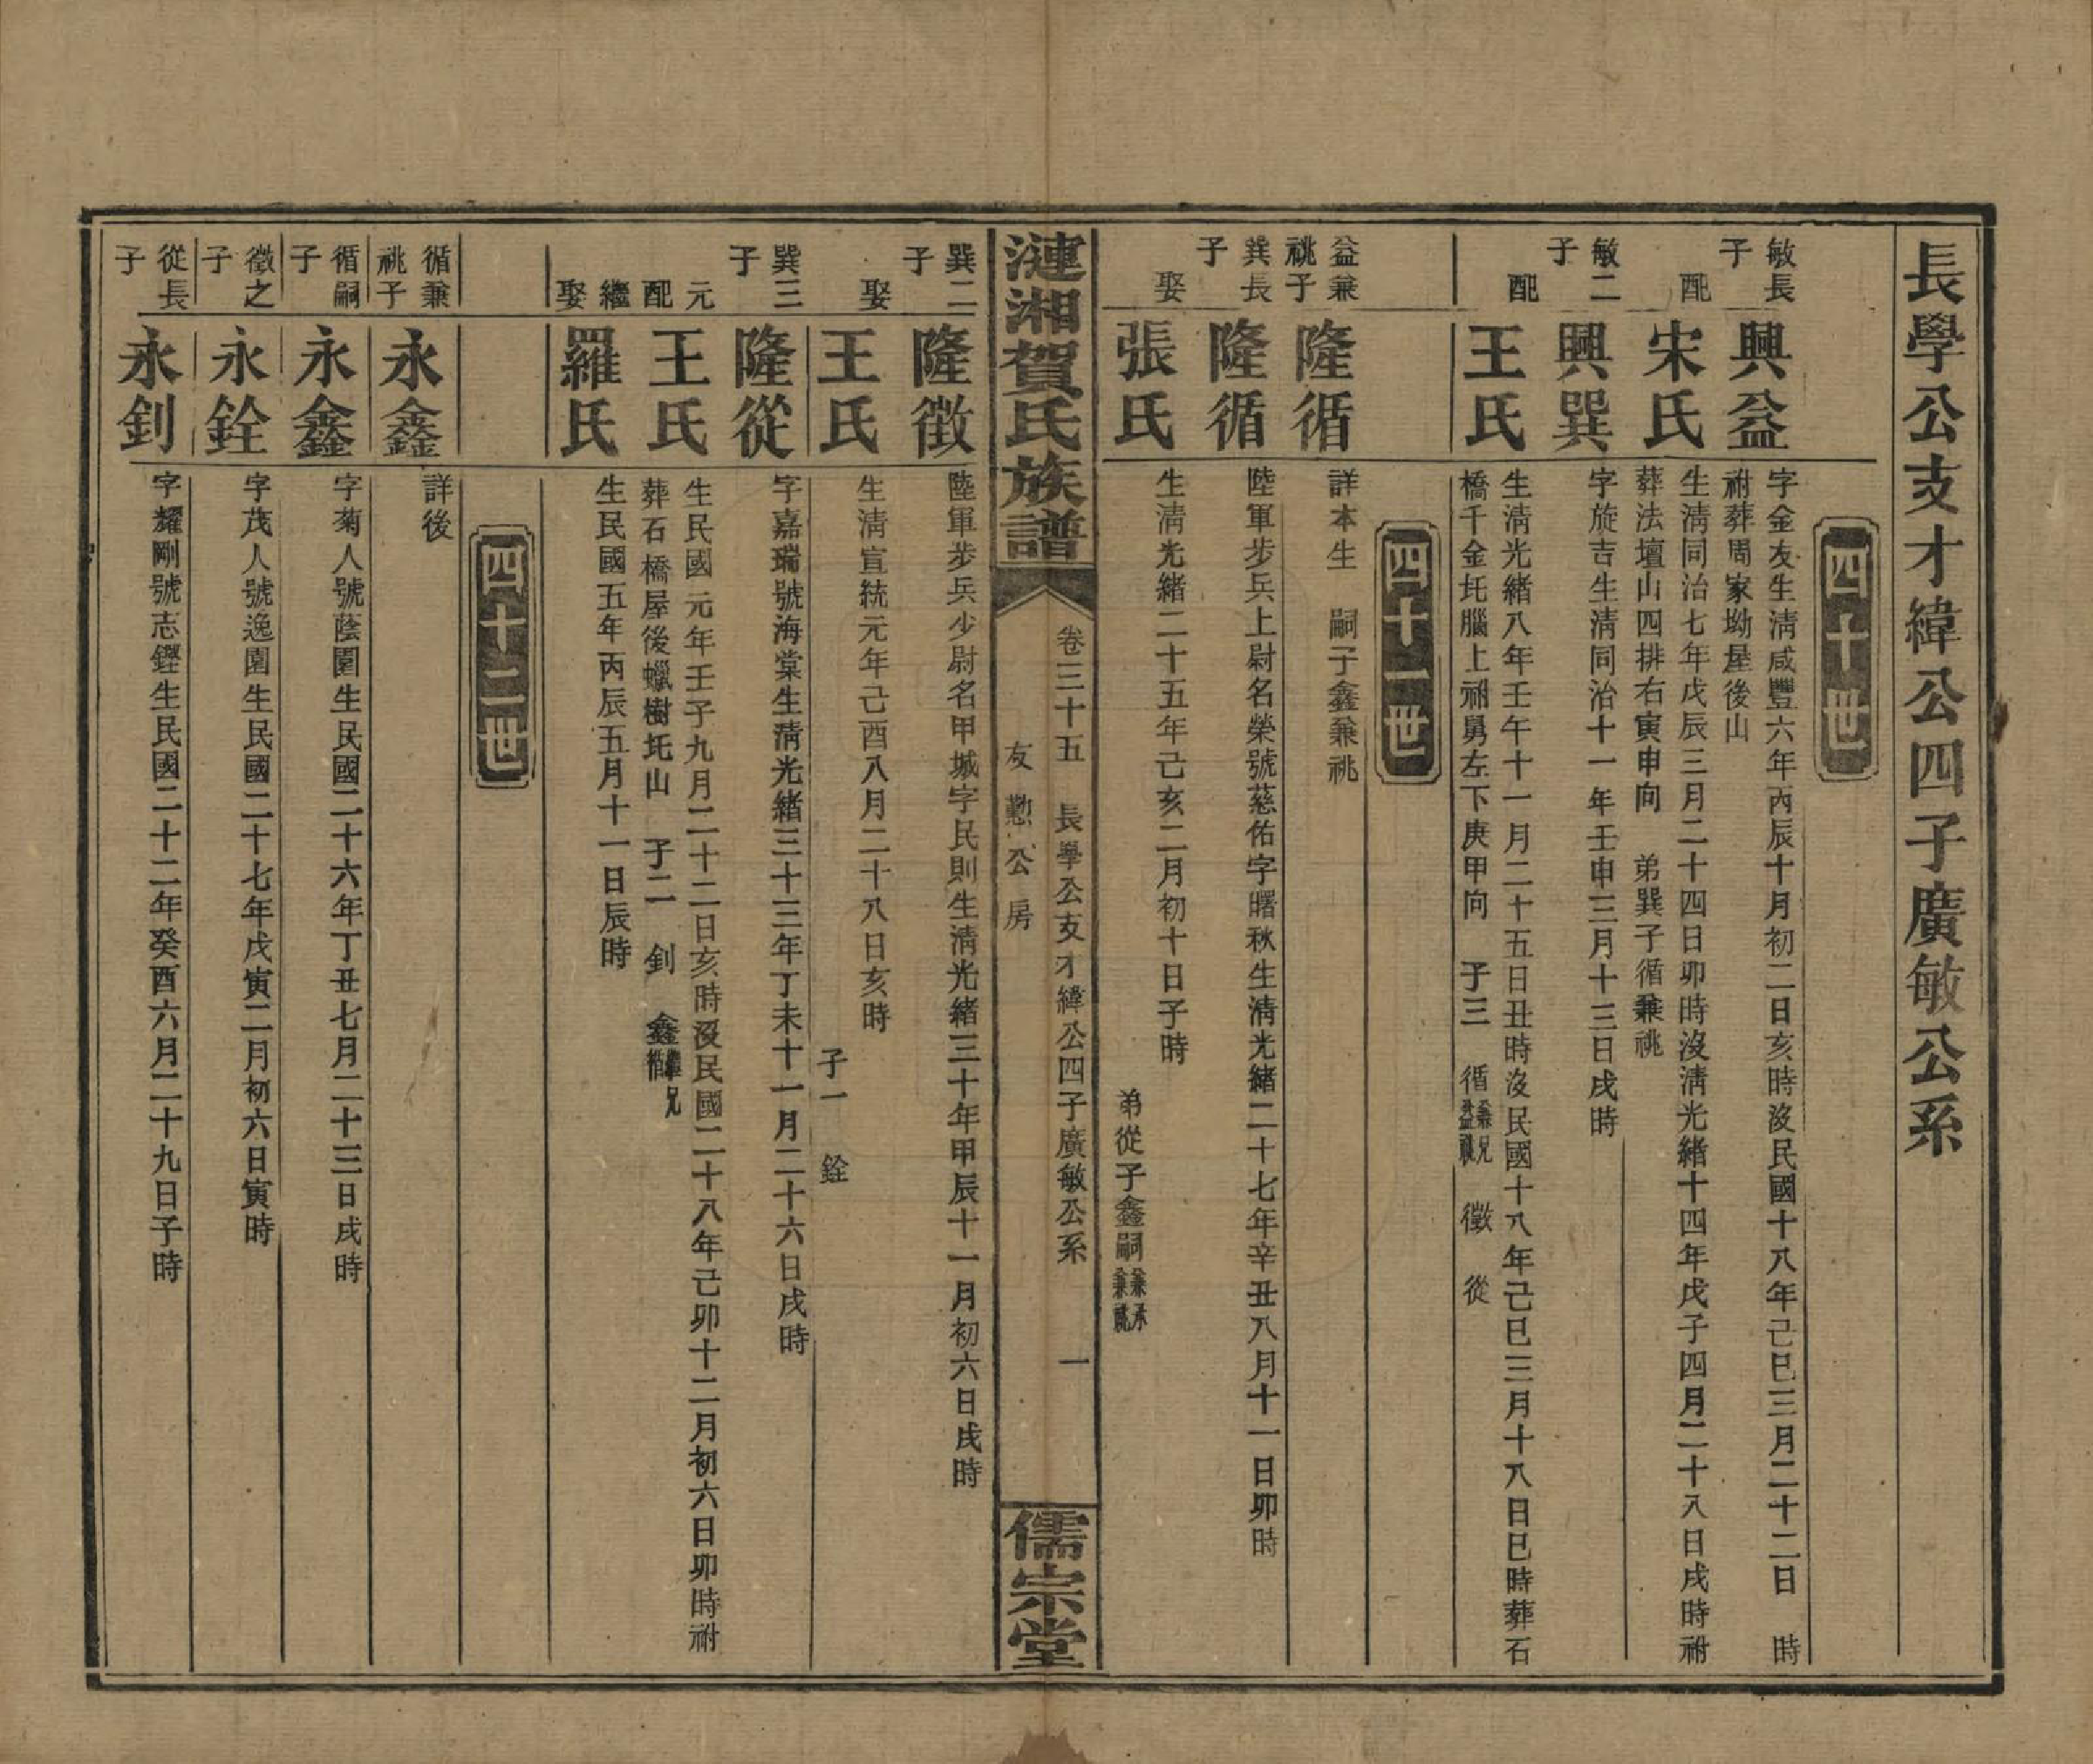 長學公支才緯公四子廣敏公系
四十世
敏長子
興益
字金友生淸咸豐六年丙辰十月初二日亥時沒民國十八年己巳三月二十二日　時
祔葬周家坳屋後山
配
宋氏
生淸同治七年戊辰三月二十四日卯時沒淸光緒十四年戊子四月二十八日戌時祔
葬法壇山四排右寅申向　弟巽子循兼祧
敏二子
興巽
字旋吉生淸同治十一年壬申三月十三日戌時
配
王氏
生淸光緒八年壬午十一月二十五日丑時沒民國十八年己巳三月十八日巳時葬石
橋千金圫腦上祔舅左下庚甲向　子三　循兼兄益祧　徵　從
四十一世
益兼祧子
隆循
詳本生　嗣子鑫兼祧
巽長子
隆循
陸軍步兵上尉名榮號慈佑字曙秋生淸光緒二十七年辛丑八月十一日卯時
娶
張氏
生淸光緒二十五年己亥二月初十日子時
弟從子鑫嗣兼承兼祧
漣湘賀氏族譜
卷三十五　長學公支才緯公四子廣敏公系　一
友懃公房
儒宗堂
巽二子
隆徵
陸軍步兵少尉名甲城字民則生淸光緒三十年甲辰十一月初六日戌時
娶
王氏
生淸宣統元年己酉八月二十八日亥時
子一　銓
巽三子
隆從
字嘉瑞號海棠生淸光緒三十三年丁未十一月二十六日戌時
元配
王氏
生民國元年壬子九月二十二日亥時沒民國二十八年己卯十二月初六日卯時祔
葬石橋屋後蠟樹圫山　子二　釗　鑫繼兄循
繼娶
羅氏
生民國五年丙辰五月十一日辰時
四十二世
循兼祧子
永鑫
詳後
循嗣子
永鑫
字菊人號蔭園生民國二十六年丁丑七月二十三日戌時
徵之子
永銓
字茂人號逸園生民國二十七年戊寅二月初六日寅時
從長子
永釗
字耀剛號志鏗生民國二十二年癸酉六月二十九日子時